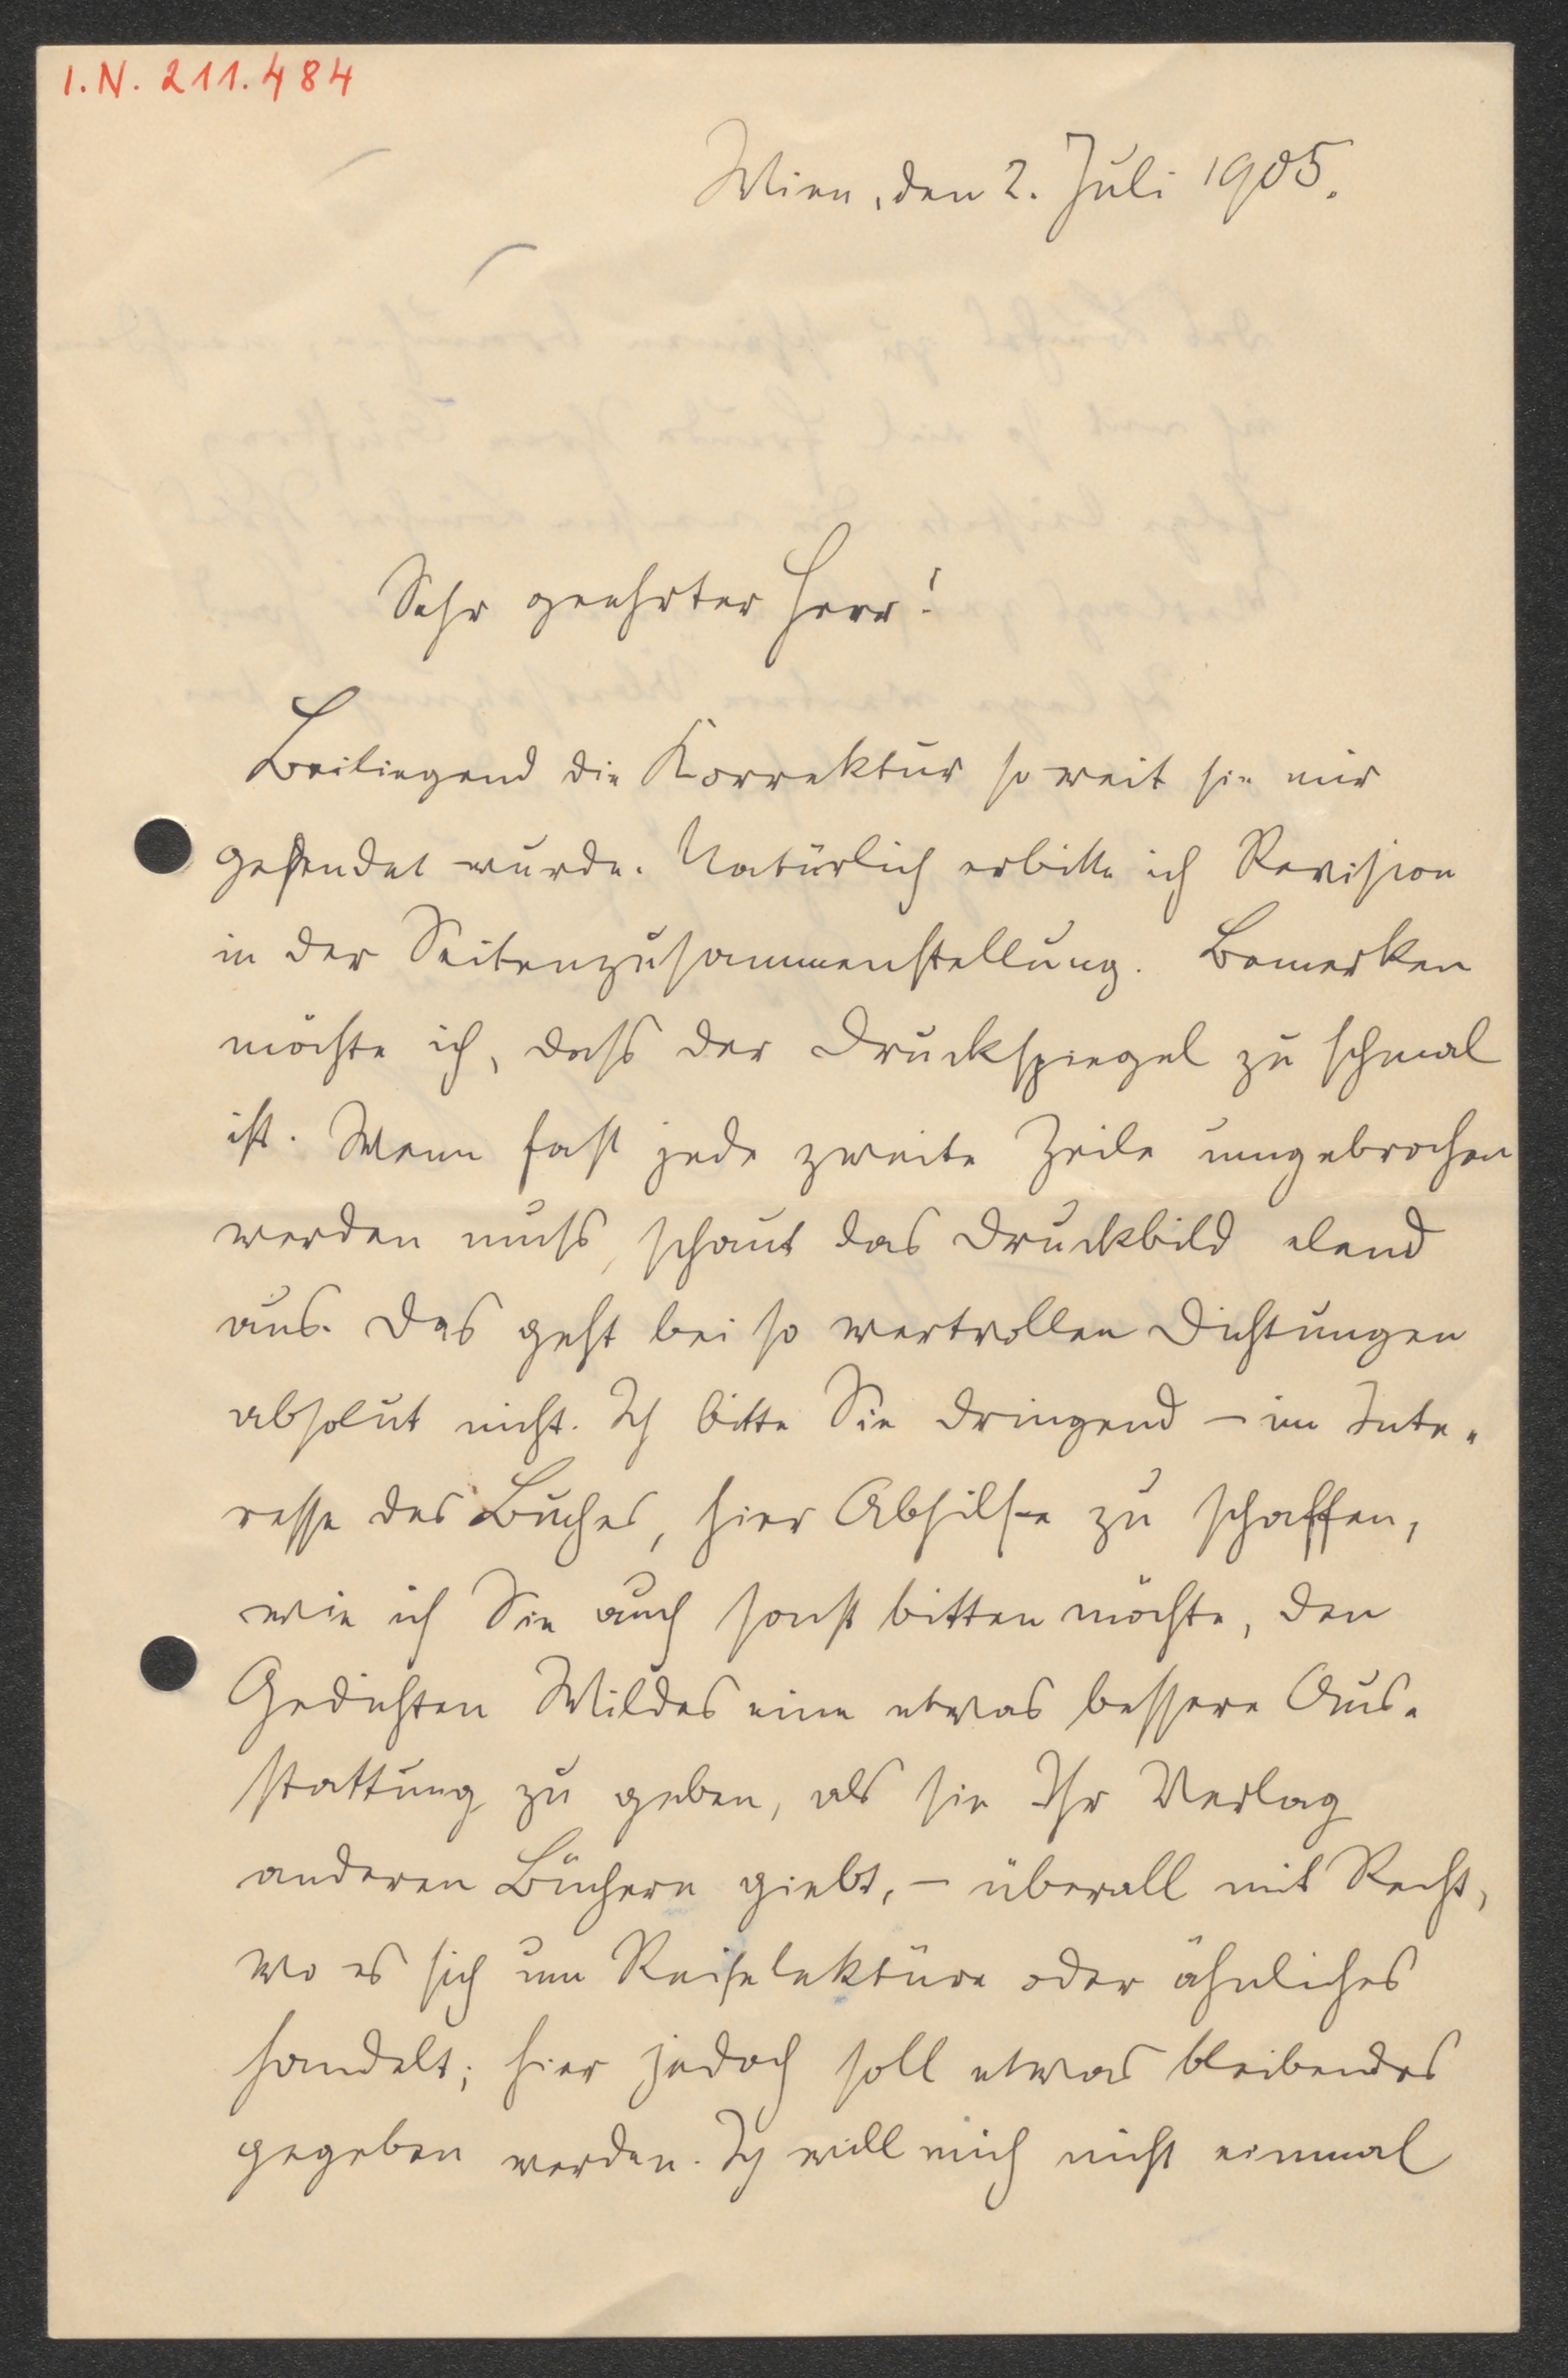 I.N. 211.484
Wien, den 2. Juli 1905.
Sehr geehrter Herr!
Beiliegend die Korrektur so weit sie mir
gesendet wurde. Natürlich erbitte ich Revision
in der Seitenzusammenstellung. Bemerken
möchte ich, dass der Druckspiegel zu schmal
ist. Wenn fast jede zweite Zeile umgebrochen
werden muss, schaut das Druckbild elend
aus. Das geht bei so wertvollen Dichtungen
absolut nicht. Ich bitte Sie dringend – im Inte-
resse des Buches, hier Abhilfe zu schaffen,
wie ich Sie auch sonst bitten möchte, den
Gedichten Wildes eine etwas bessere Aus-
stattung zu geben, als sie Ihr Verlag
anderen Büchern giebt, – überall mit Recht,
wo es sich um Reiselektüre oder ähnliches
handelt; hier jedoch soll etwas bleibendes
gegeben werden. Ich will mich nicht einmal